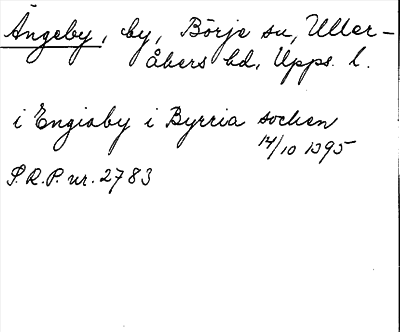 Ängeby, by, Börje sn, Uller-
åkers hd, Upps. l.
i Engiaby i Byrria sochen
14/10 1395
S.R.P. nr. 2783